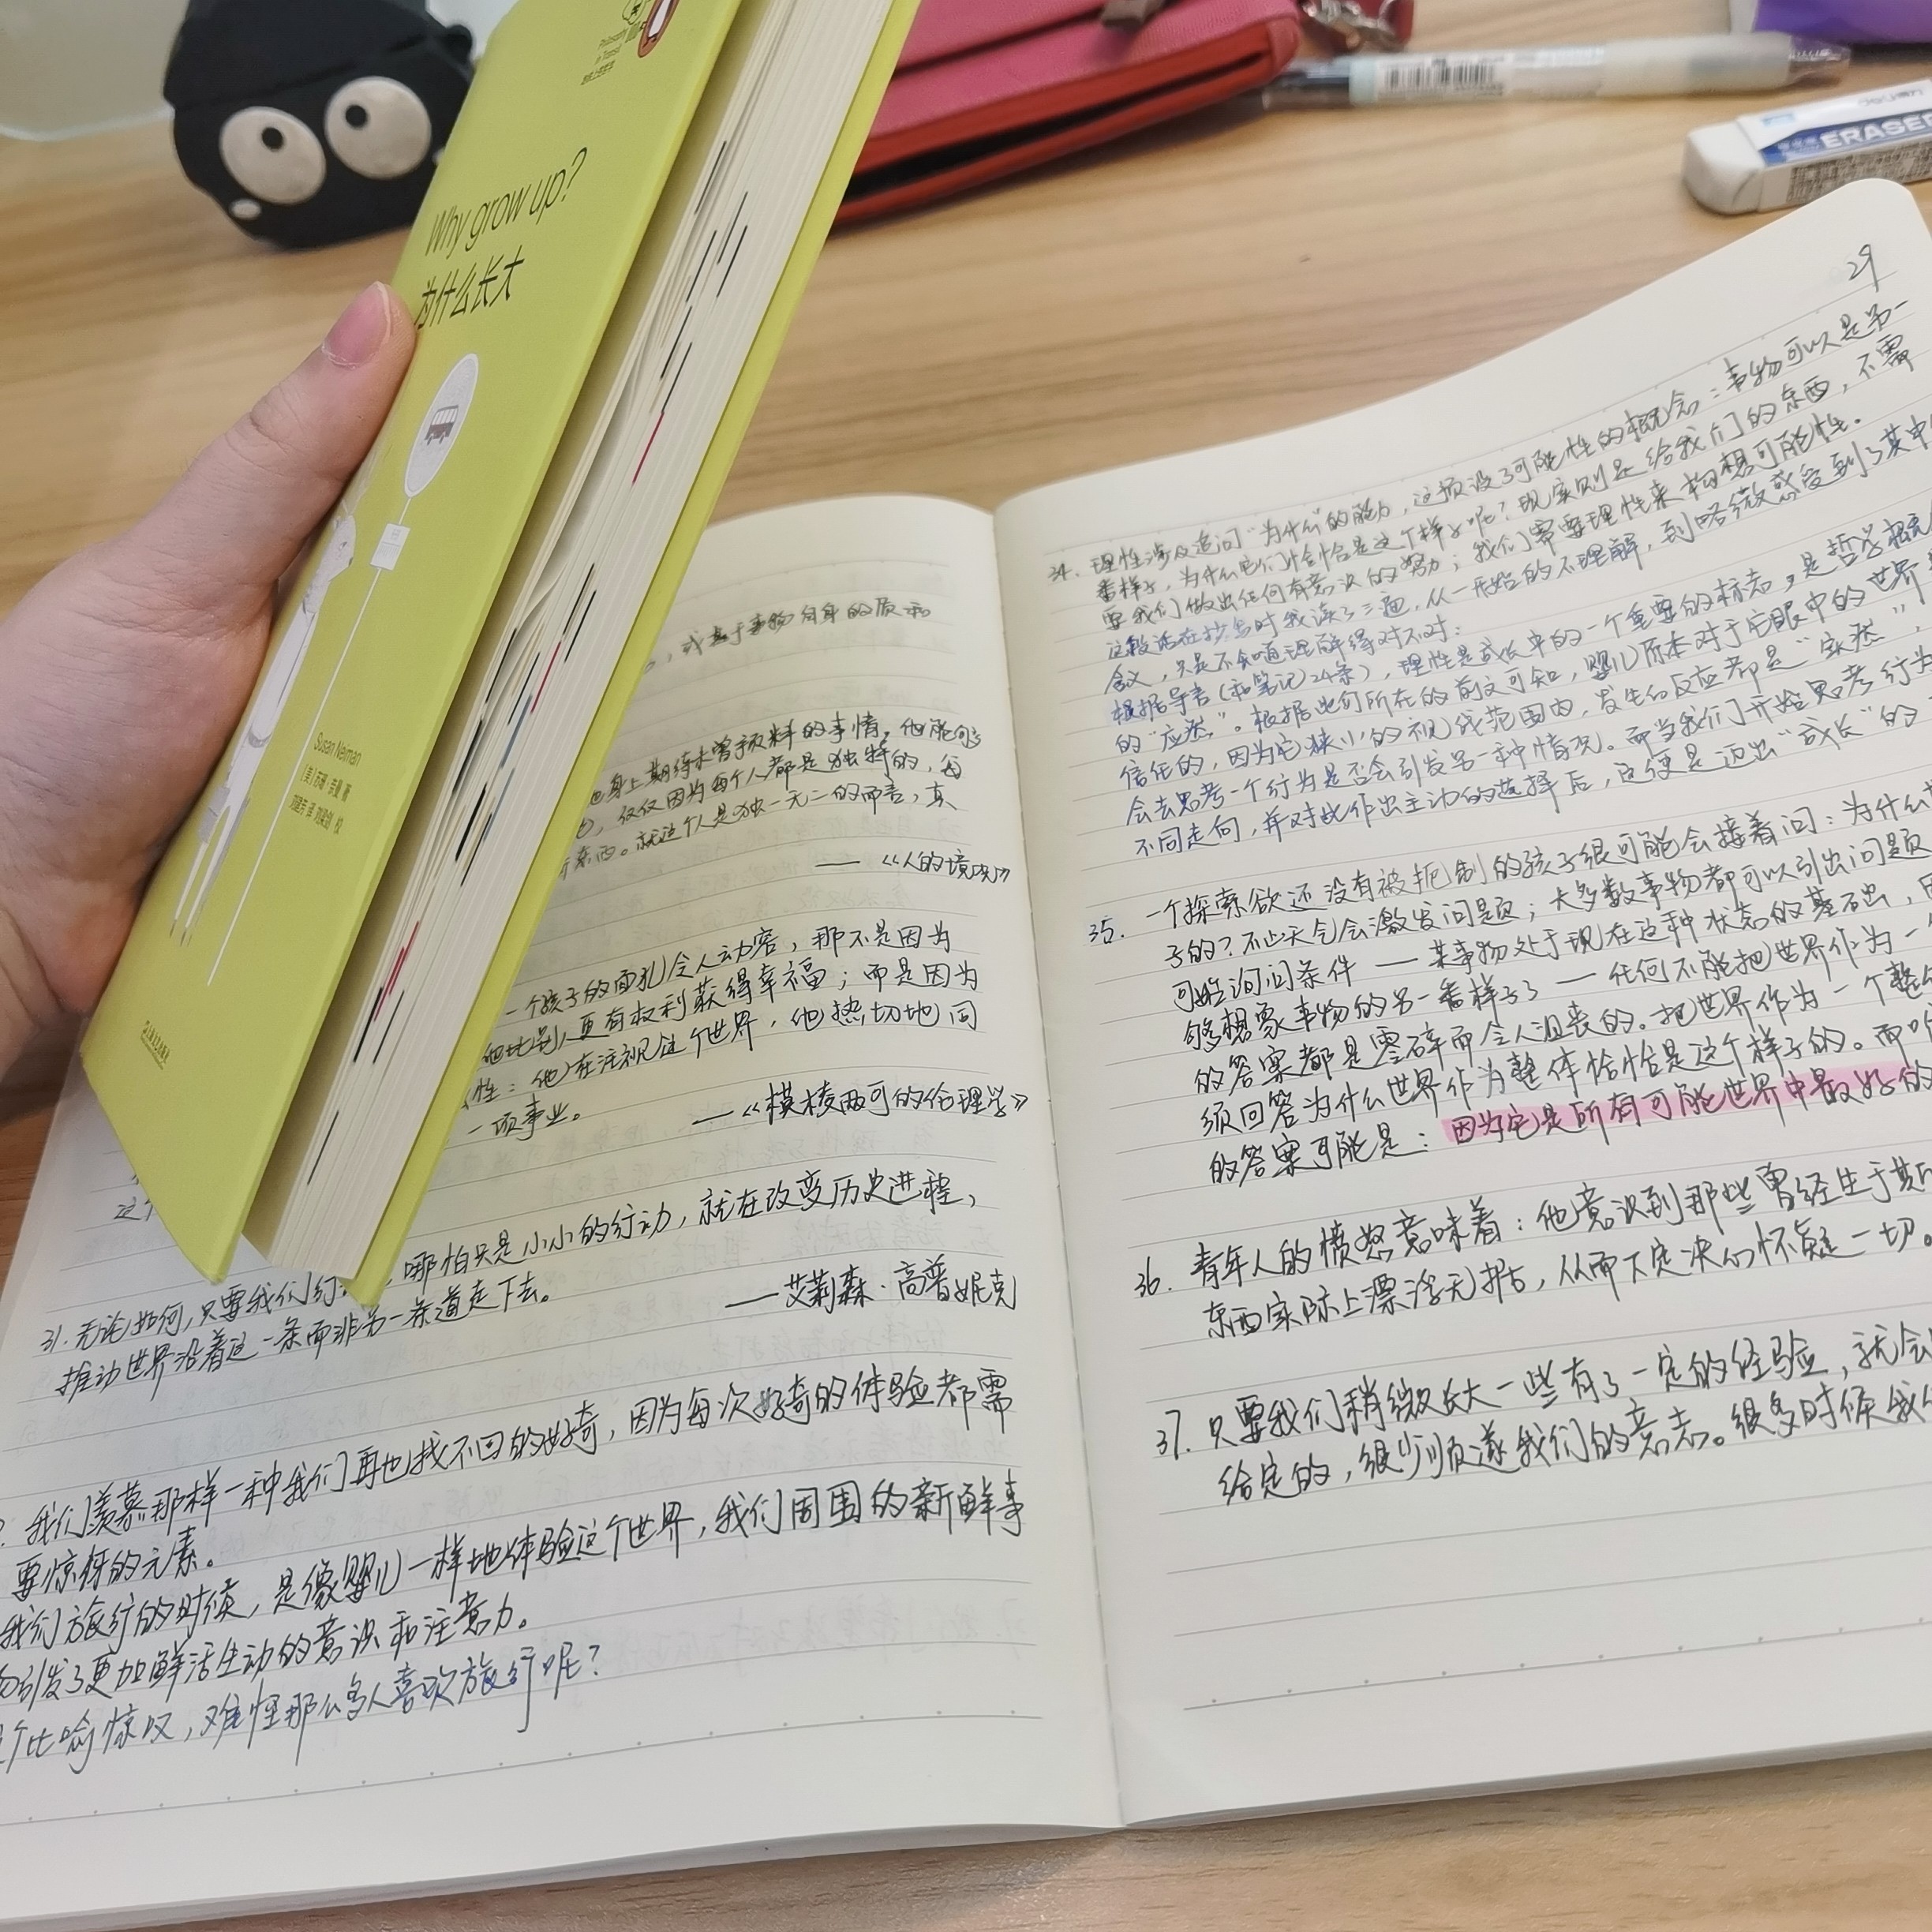 Philosophy
in Transit
Why grow up?
为什么长大
Susan Neiman
[美]苏珊·奈曼 著
刘建芳 译 刘梁剑 校
ERASER
,或基于事物自身的质和
身上期待未曾预料的事情,他能够
,仅仅因为每个人都是独特的,每
东西。就这个人是独一无二的而言,真
——《人的境况》
一个孩子的面孔令人动容,那不是因为
他比别人更有权利获得幸福;而是因为
性:他在注视这个世界,他热切地同
一项事业。
——《模棱两可的伦理学》
31.无论如何,只要我们行 哪怕只是小小的行动,就在改变历史进程,
推动世界沿着这一条而非另一条道走下去。
——艾莉森·高普妮克
我们羡慕那样一种我们再也找不回的好奇,因为每次好奇的体验都需
要惊讶的元素。
我们旅行的时候,是像婴儿一样地体验这个世界,我们周围的新鲜事
引发了更加鲜活生动的意识和注意力。
个比喻惊叹,难怪那么多人喜欢旅行呢?
29
34.理性涉及追问“为什么”的能力,这预设了可能性的概念:事物可以是另一
番样子,为什么它们恰恰是这个样子呢?现实则是给我们的东西,不需
要我们做出任何有意识的努力;我们需要理性来构想可能性。
这段话在抄写时我读了三遍,从一开始的不理解,到略微感受到了其中
含义,只是不知道理解得对不对:
根据导言(和笔记24条),理性是成长中的一个重要的标志,是哲学概
的“应然”。根据此句所在的前文可知,婴儿原本对于它眼中的世界
信任的,因为它狭小的视线范围内,发生的反应都是“实然”,
会去思考一个行为是否会引发另一种情况。而当我们开始思考行为
不同走向,并对此作出主动的选择后,这便是迈出“成长”的
35. 一个探索欲还没有被扼制的孩子很可能会接着问:为什么
子的?不止天气会激发问题;大多数事物都可以引出问题
可始询问条件——某事物处于现在这种状态的基础,
够想象事物的另一番样子了——任何不能把世界作为一
的答案都是零碎而令人沮丧的。把世界作为一个整
须回答为什么世界作为整体恰恰是这个样子的。而
的答案可能是:因为它是所有可能世界中最好的
36. 青年人的愤怒意味着:他意识到那些曾经生于斯
东西实际上漂浮无据,从而下定决心怀疑一切。
37. 只要我们稍微长大一些有了一定的经验,就会
给定的,很少顺遂我们的意志。很多时候我